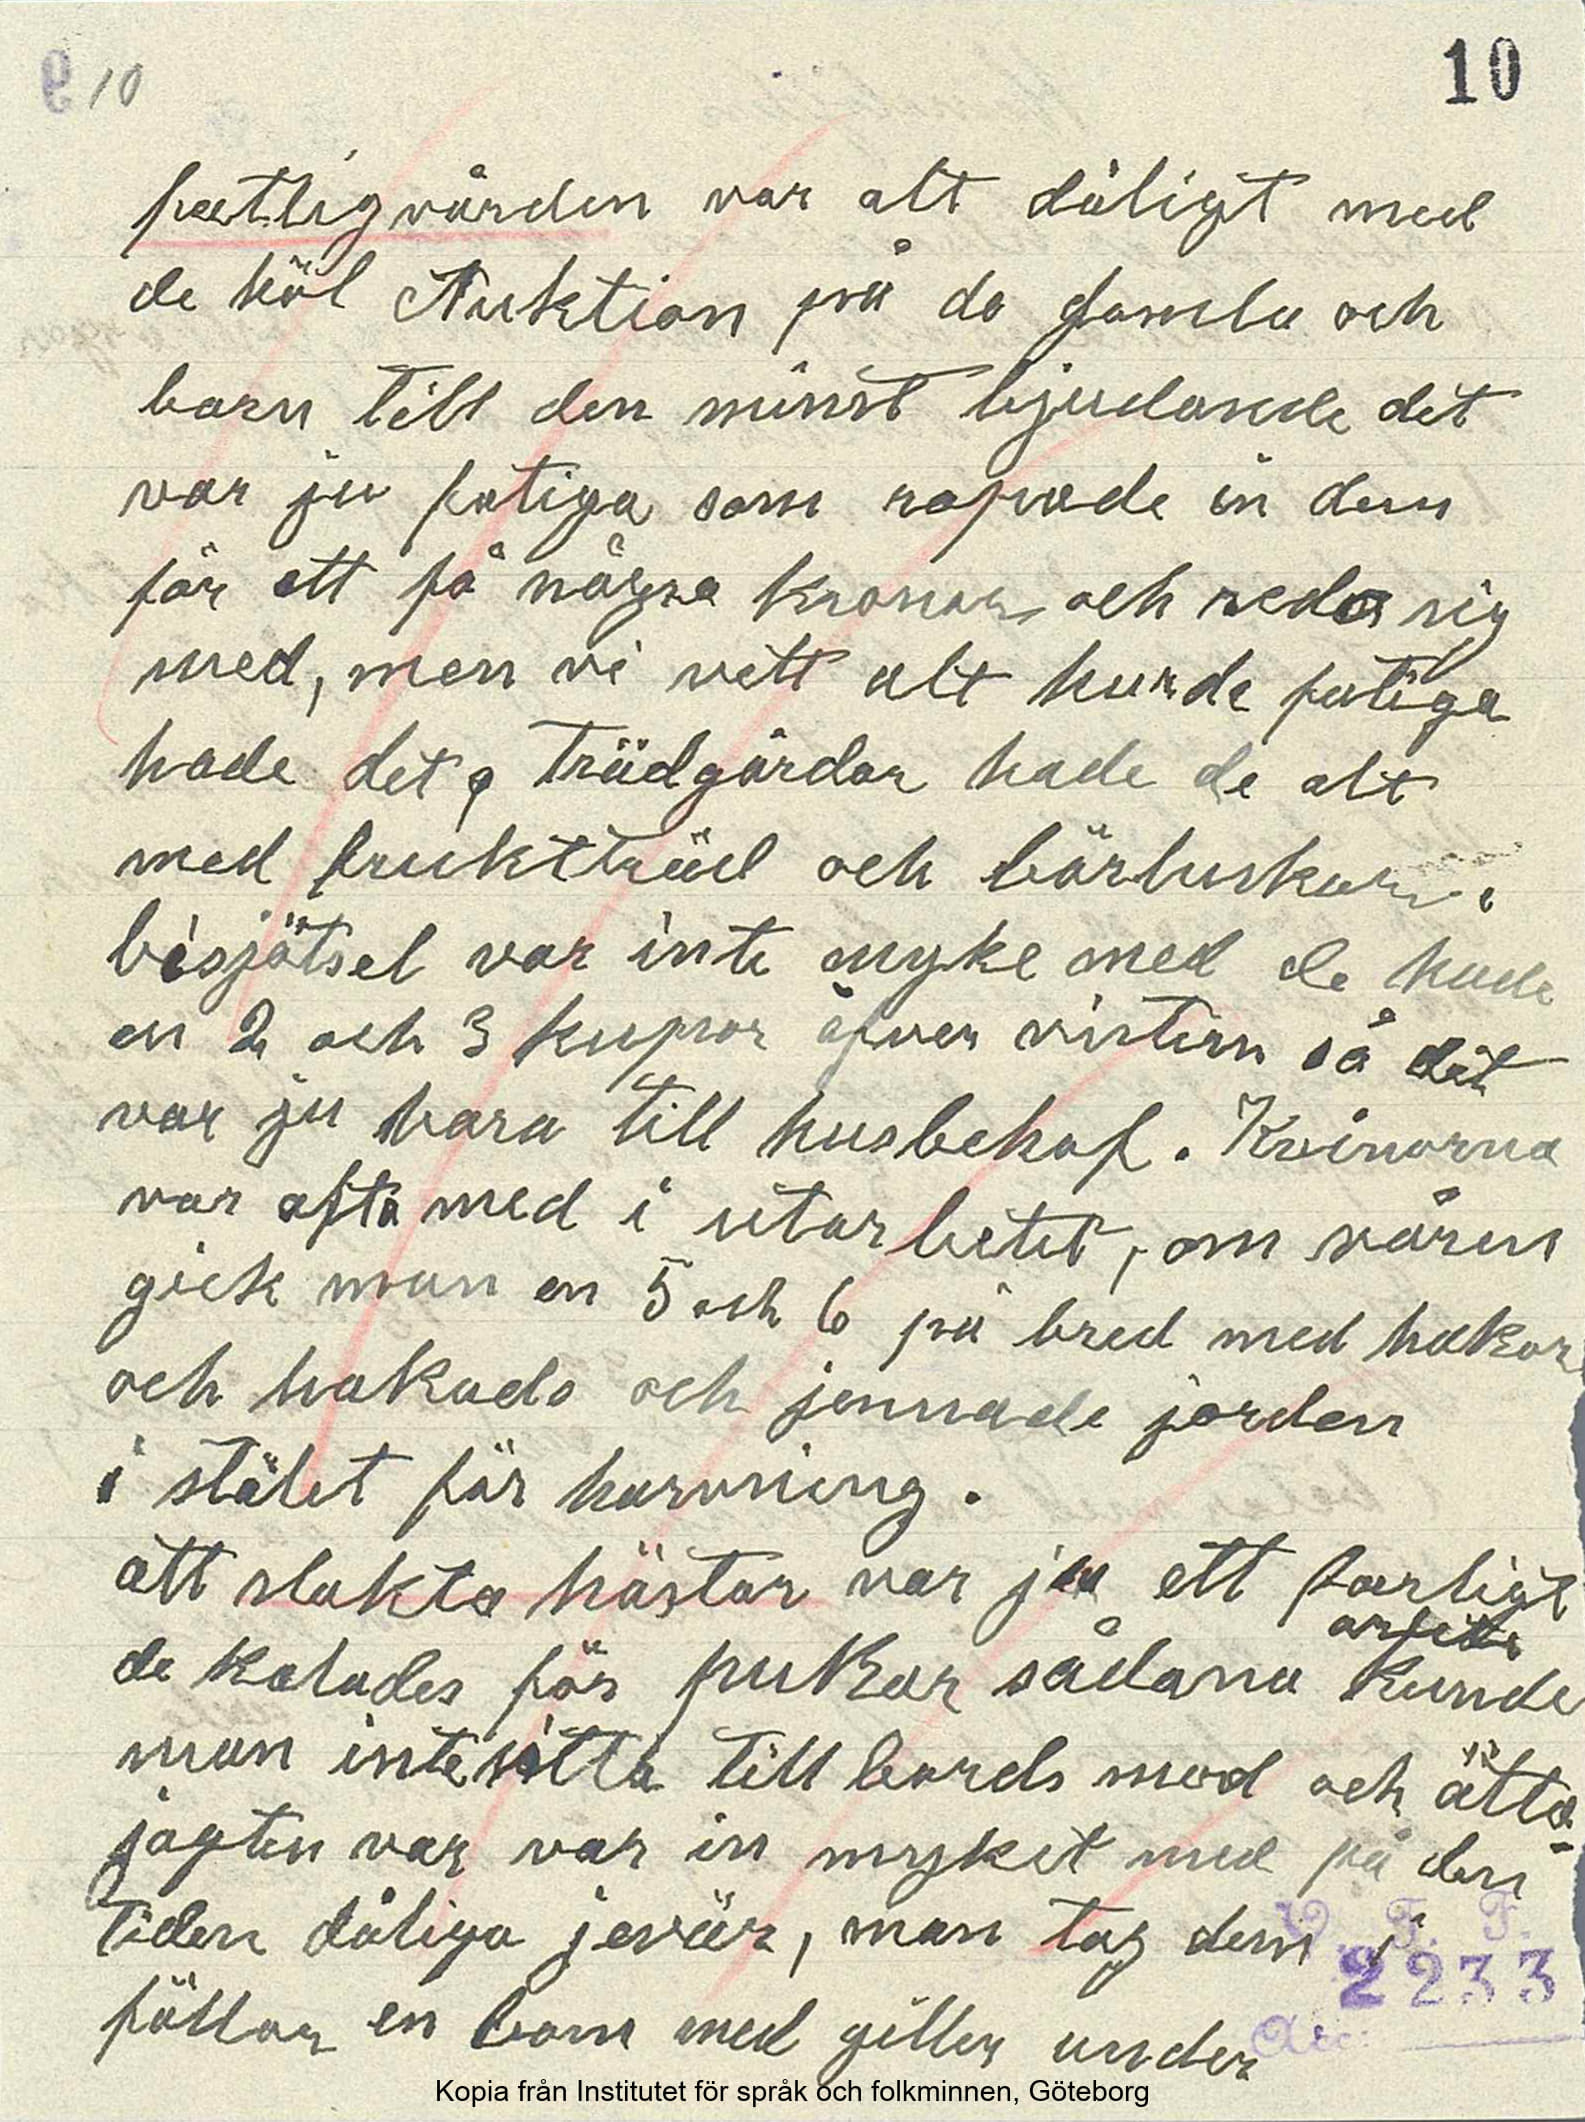 9 10
10
fattigvården var alt dåligt med
de höl Auktion på de gamla och
barn till den minst bjudande det
var ju fatiga som ropade in dem
för ett få några kronor och reda sig
med, men vi vett alt hur de fatiga
hade det, trädgårdar hade de alt
med fruktträd och bärbuskar,
bisjötsel var inte myke med de hade
en 2 och 3 kupor öfver vintern så det
var ju bara till husbehof. Kvinorna
var ofta med i utarbetet, om våren
gick man en 5 och 6 på bred med hakor
och hakade och jemnade jorden
i stället för harvning.
att slakta hästar var ju ett farligt
arbete
de kalades för pukor sådana kunde
man inte sitta till bords med och ätta
jagten var var in myket med på den
tiden dåliga jevär, man tog dem i
fällor en bom med giller under
V. F. F.
2233
Acc:
Kopia från Institutet för språk och folkminnen, Göteborg